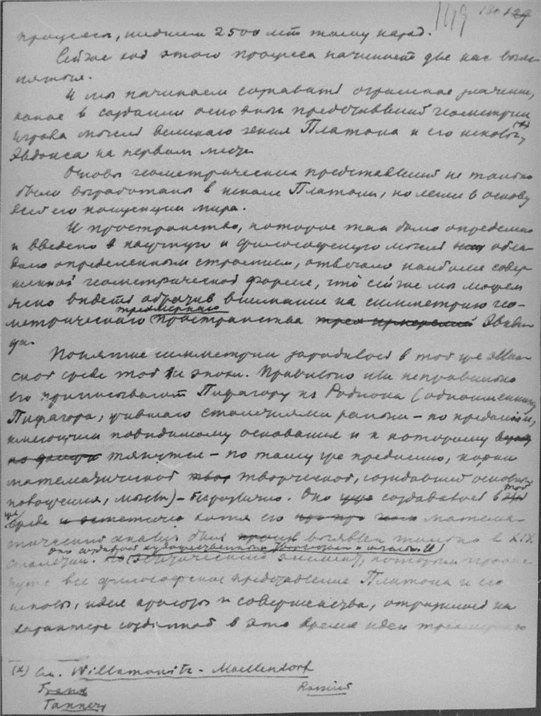 процесс, шедший 2500 лет тому назад.
Сейчас ход этого процесса начинает для нас выяс
няться.
И мы начинаем сознавать огромное значение,
какое в создании основных представлений геометрии
играла мысль великого гения Платона и его школы, (x)
Эвдокса на первом месте.
Основы геометрических представлений не только
были выработаны в школе Платона, но легли в основу
всей его концепции мира.
И пространство, которое там было определено
и введено в научную и философскую мысль обла
дало определенным строением, отвечало наиболее совер
шенной геометрической форме, что сейчас мы можем
ясно видеть обратив внимание на симметрию гео-
метрического трехмерного пространства трех измерений Эвкли
да.
Понятие симметрии зародилось в той же
среде той эпохи. Правильно или неправильно
его приписывают Пифагору из (одноименному
Пифагору, учившему столетиями раньше - по преданию,
имеющим повидимому основания и к которому
тянутся - по тому же преданию, корни
математической творческой, создавшей основные
мысли) - безразлично. Оно создавалось в той
же среде хотя его матема
тический анализ был выявлен только в XIX
столетии.
эстетический элемент, который прони
кнут все философские представления Платона и его
школы, идея красоты и совершенства, отразился на
характере созданной в это время идеи трехмерного
(x) См. Willamowitz - Moellendorf
Frank
Tannery